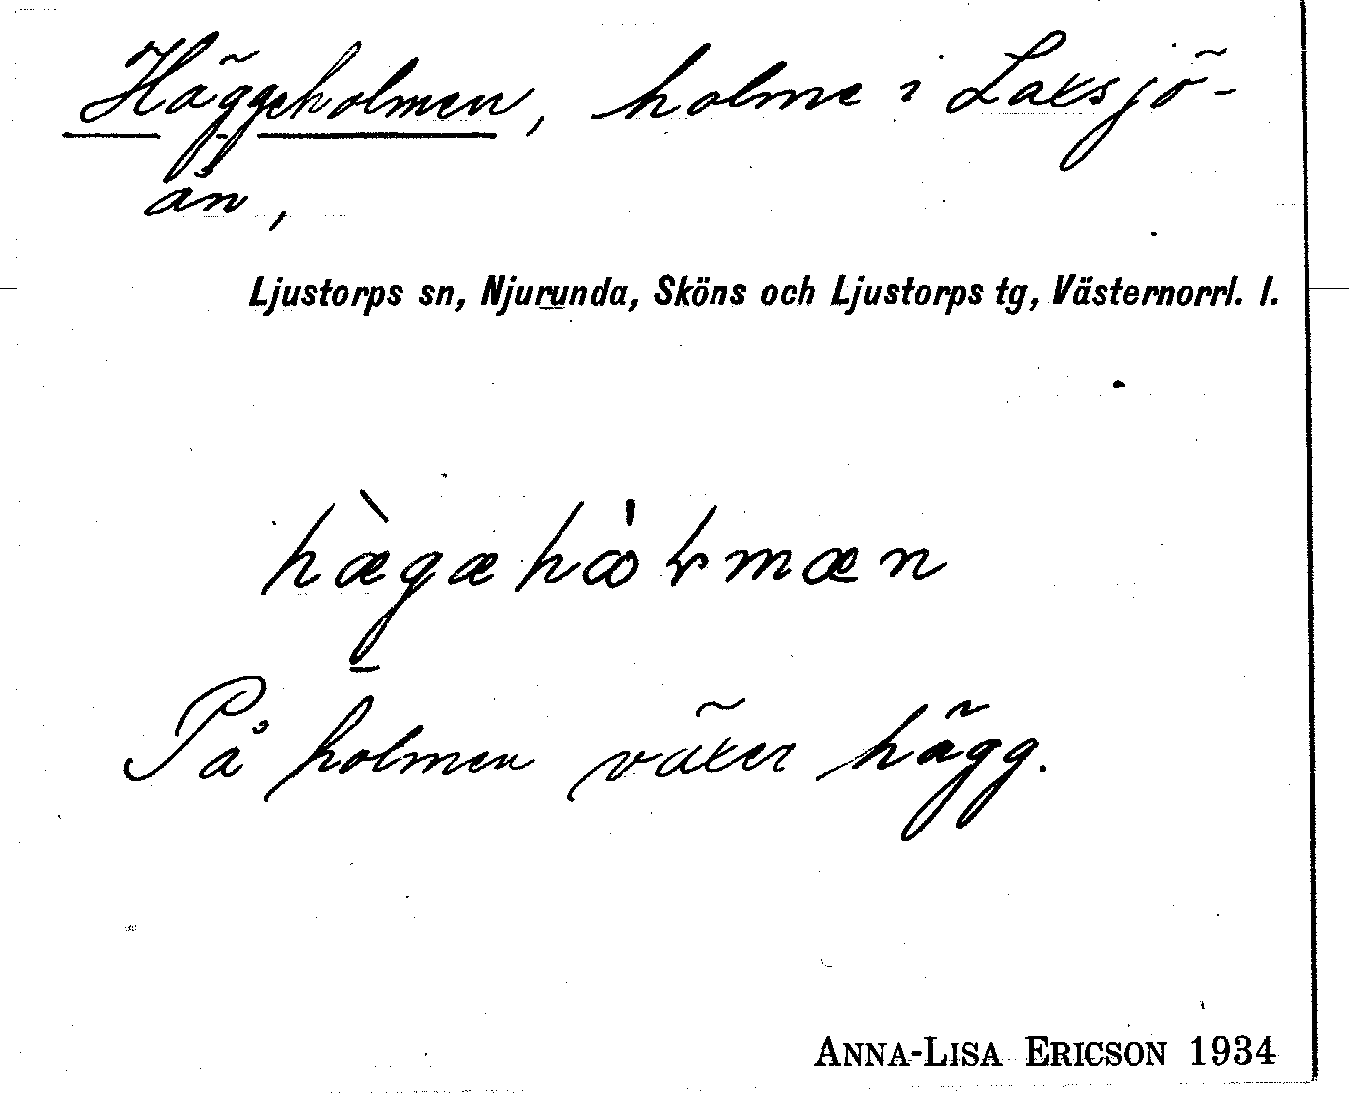 Häggeholmen, holme i Laxsjö-
ån,
Ljustorps sn, Njurunda, Sköns och Ljustorps tg, Västernorrl. l.
hæ̀gæhòɽmæn
På holmen växer hägg.
ANNA-LISA ERICSON 1934